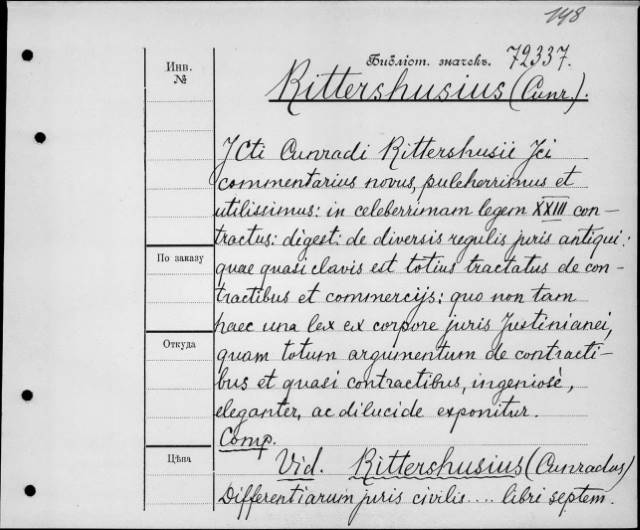 148
Инв.
№
Библіот. значекъ. 72337.
Rittershusius (Cunr.).
JCti Cunradi Rittershusii Jci
commentarius novus, pulcherrimus et
utilissimus: in celeberrimam legem XXIII con-
tractus: digest: de diversis regulis juris antiqui:
quae quasi clavis est totius tractatus de con-
По заказу
tractibus et commercijs: quo non tam
haec una lex ex corpore juris Justinianei,
Откуда
quam totum argumentum de contracti-
bus et quasi contractibus, ingeniosè,
eleganter, ac dilucide exponitur.
Comp.
Цѣна
Vid. Rittershusius (Cunradus)
Differentiarum juris civilis.... libri septem.